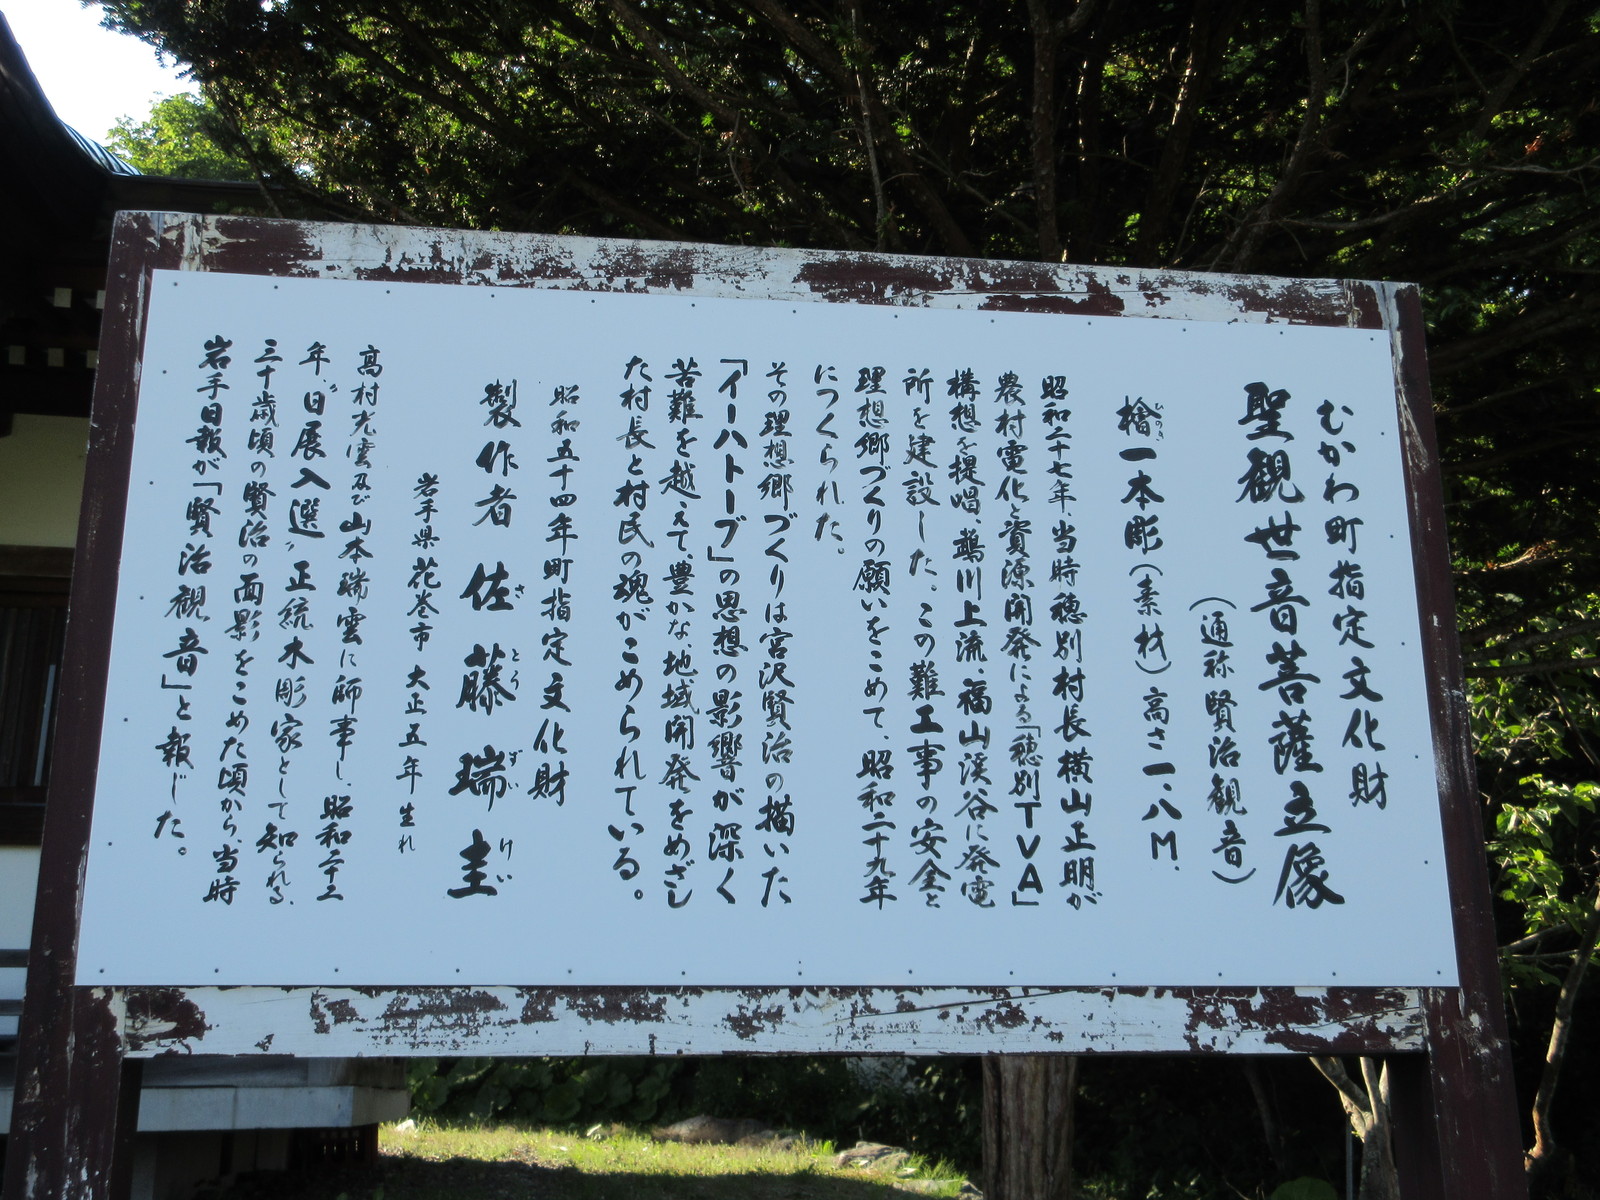 むかわ町指定文化財
聖観世音菩薩立像
（通称賢治観音）
檜一本彫（素材）高さ一・八M.
ひのき
昭和二十七年、当時穂別村長横山正明が
農村電化と資源開発による「穂別TVA」
構想を提唱、鵡川上流、福山渓谷に発電
所を建設した。この難工事の安全と
理想郷づくりの願いをこめて、昭和二十九年
につくられた。
その理想郷づくりは宮沢賢治の描いた
「イーハトーブ」の思想の影響が深く
苦難を越えて、豊かな地域開発をめざし
た村長と村民の魂がこめられている。
昭和五十四年町指定文化財
製作者 佐藤瑞圭
さとうずいけい
岩手県花巻市 大正五年生れ
高村光雲及び山本瑞雲に師事し、昭和二十二
年〝日展入選〟正統木彫家として知られる、
三十歳頃の賢治の面影をこめた頃から、当時
岩手日報が「賢治観音」と報じた。